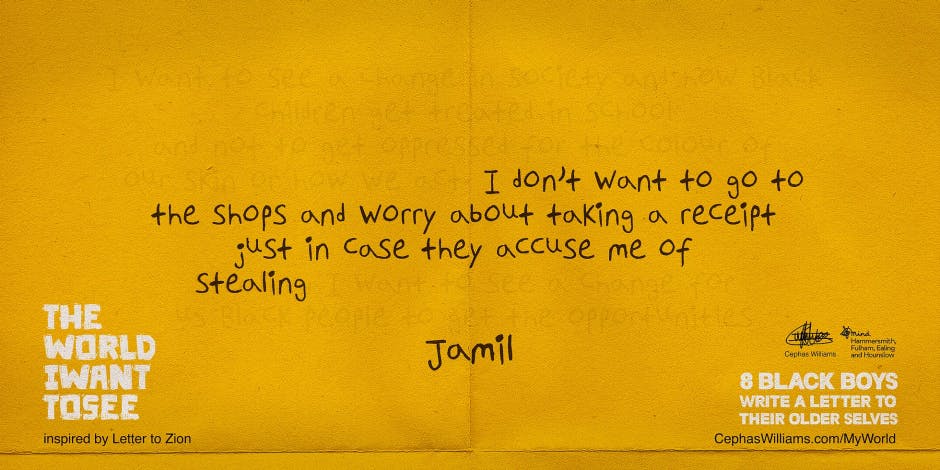 I want to see a change in society and how Black
children get treated in school
and not to get oppressed for the colour of
our skin or how we act. I don't want to go to
the shops and worry about taking a receipt
just in case they accuse me of
stealing I want to see a change for
us Black people to get the opportunities
Jamil
THE
WORLD
IWANT
TOSEE
inspired by Letter to Zion
Cephas Williams
mind
Hammersmith,
Fulham, Ealing
and Hounslow
8 BLACK BOYS
WRITE A LETTER TO
THEIR OLDER SELVES
CephasWilliams.com/MyWorld